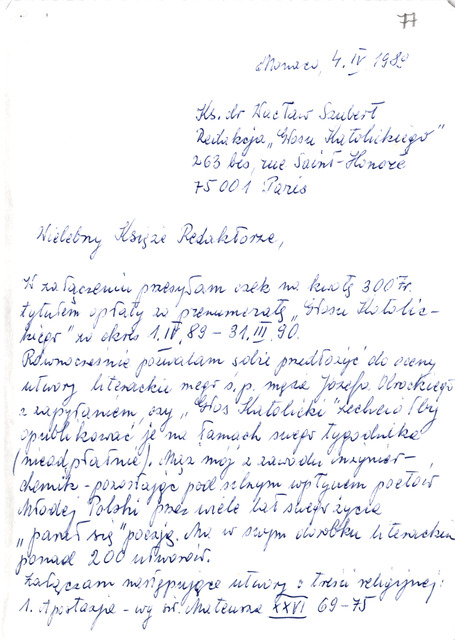 77
Monaco, 4.IV 1989
Ks. dr Wacław Szubert
Redakcja „Głosu Katolickiego"
263 bis, rue Saint-Honoré
75001 Paris
Wielebny Księże Redaktorze,
W załączeniu przesyłam czek na kwotę 300 Fr.
tytułem opłaty za prenumeratę „Głosu Katolic-
kiego" za okres 1.IV.89 – 31.III.90.
Równocześnie pozwalam sobie przedłożyć do oceny
utwory literackie mego ś.p. męża Józefa
z zapytaniem czy „Głos Katolicki" zechciałby
opublikować je na łamach swego tygodnika
(nieodpłatnie). Mąż mój z zawodu inżynier-
chemik - pozostając pod silnym wpływem poetów
Młodej Polski przez wiele lat swego życia
„parał się" poezją. Ma w swym dorobku literackim
ponad 200 utworów.
Załączam następujące utwory z treści religijnej:
1. Apostazja - wg św. Mateusza XXVI 69-75